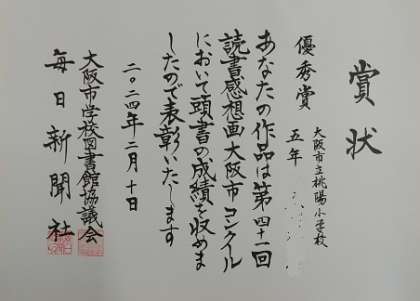 賞状
大阪市立桃陽小学校
優秀賞 五年
あなたの作品は第四十一回
読書感想画大阪市コンクール
において頭書の成績を収めま
したので表彰いたします
二〇二四年二月十日
大阪市学校図書館協議会
毎日新聞社